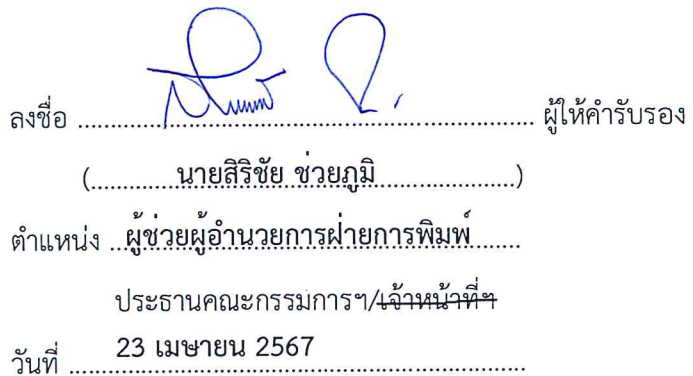 ลงชื่อ ................................................................ ผู้ให้คำรับรอง
(............นายสิริชัย ช่วยภูมิ....................)
ตำแหน่ง ...ผู้ช่วยผู้อำนวยการฝ่ายการพิมพ์.......
ประธานคณะกรรมการฯ/เจ้าหน้าที่ฯ
วันที่ ......23 เมษายน 2567..............................